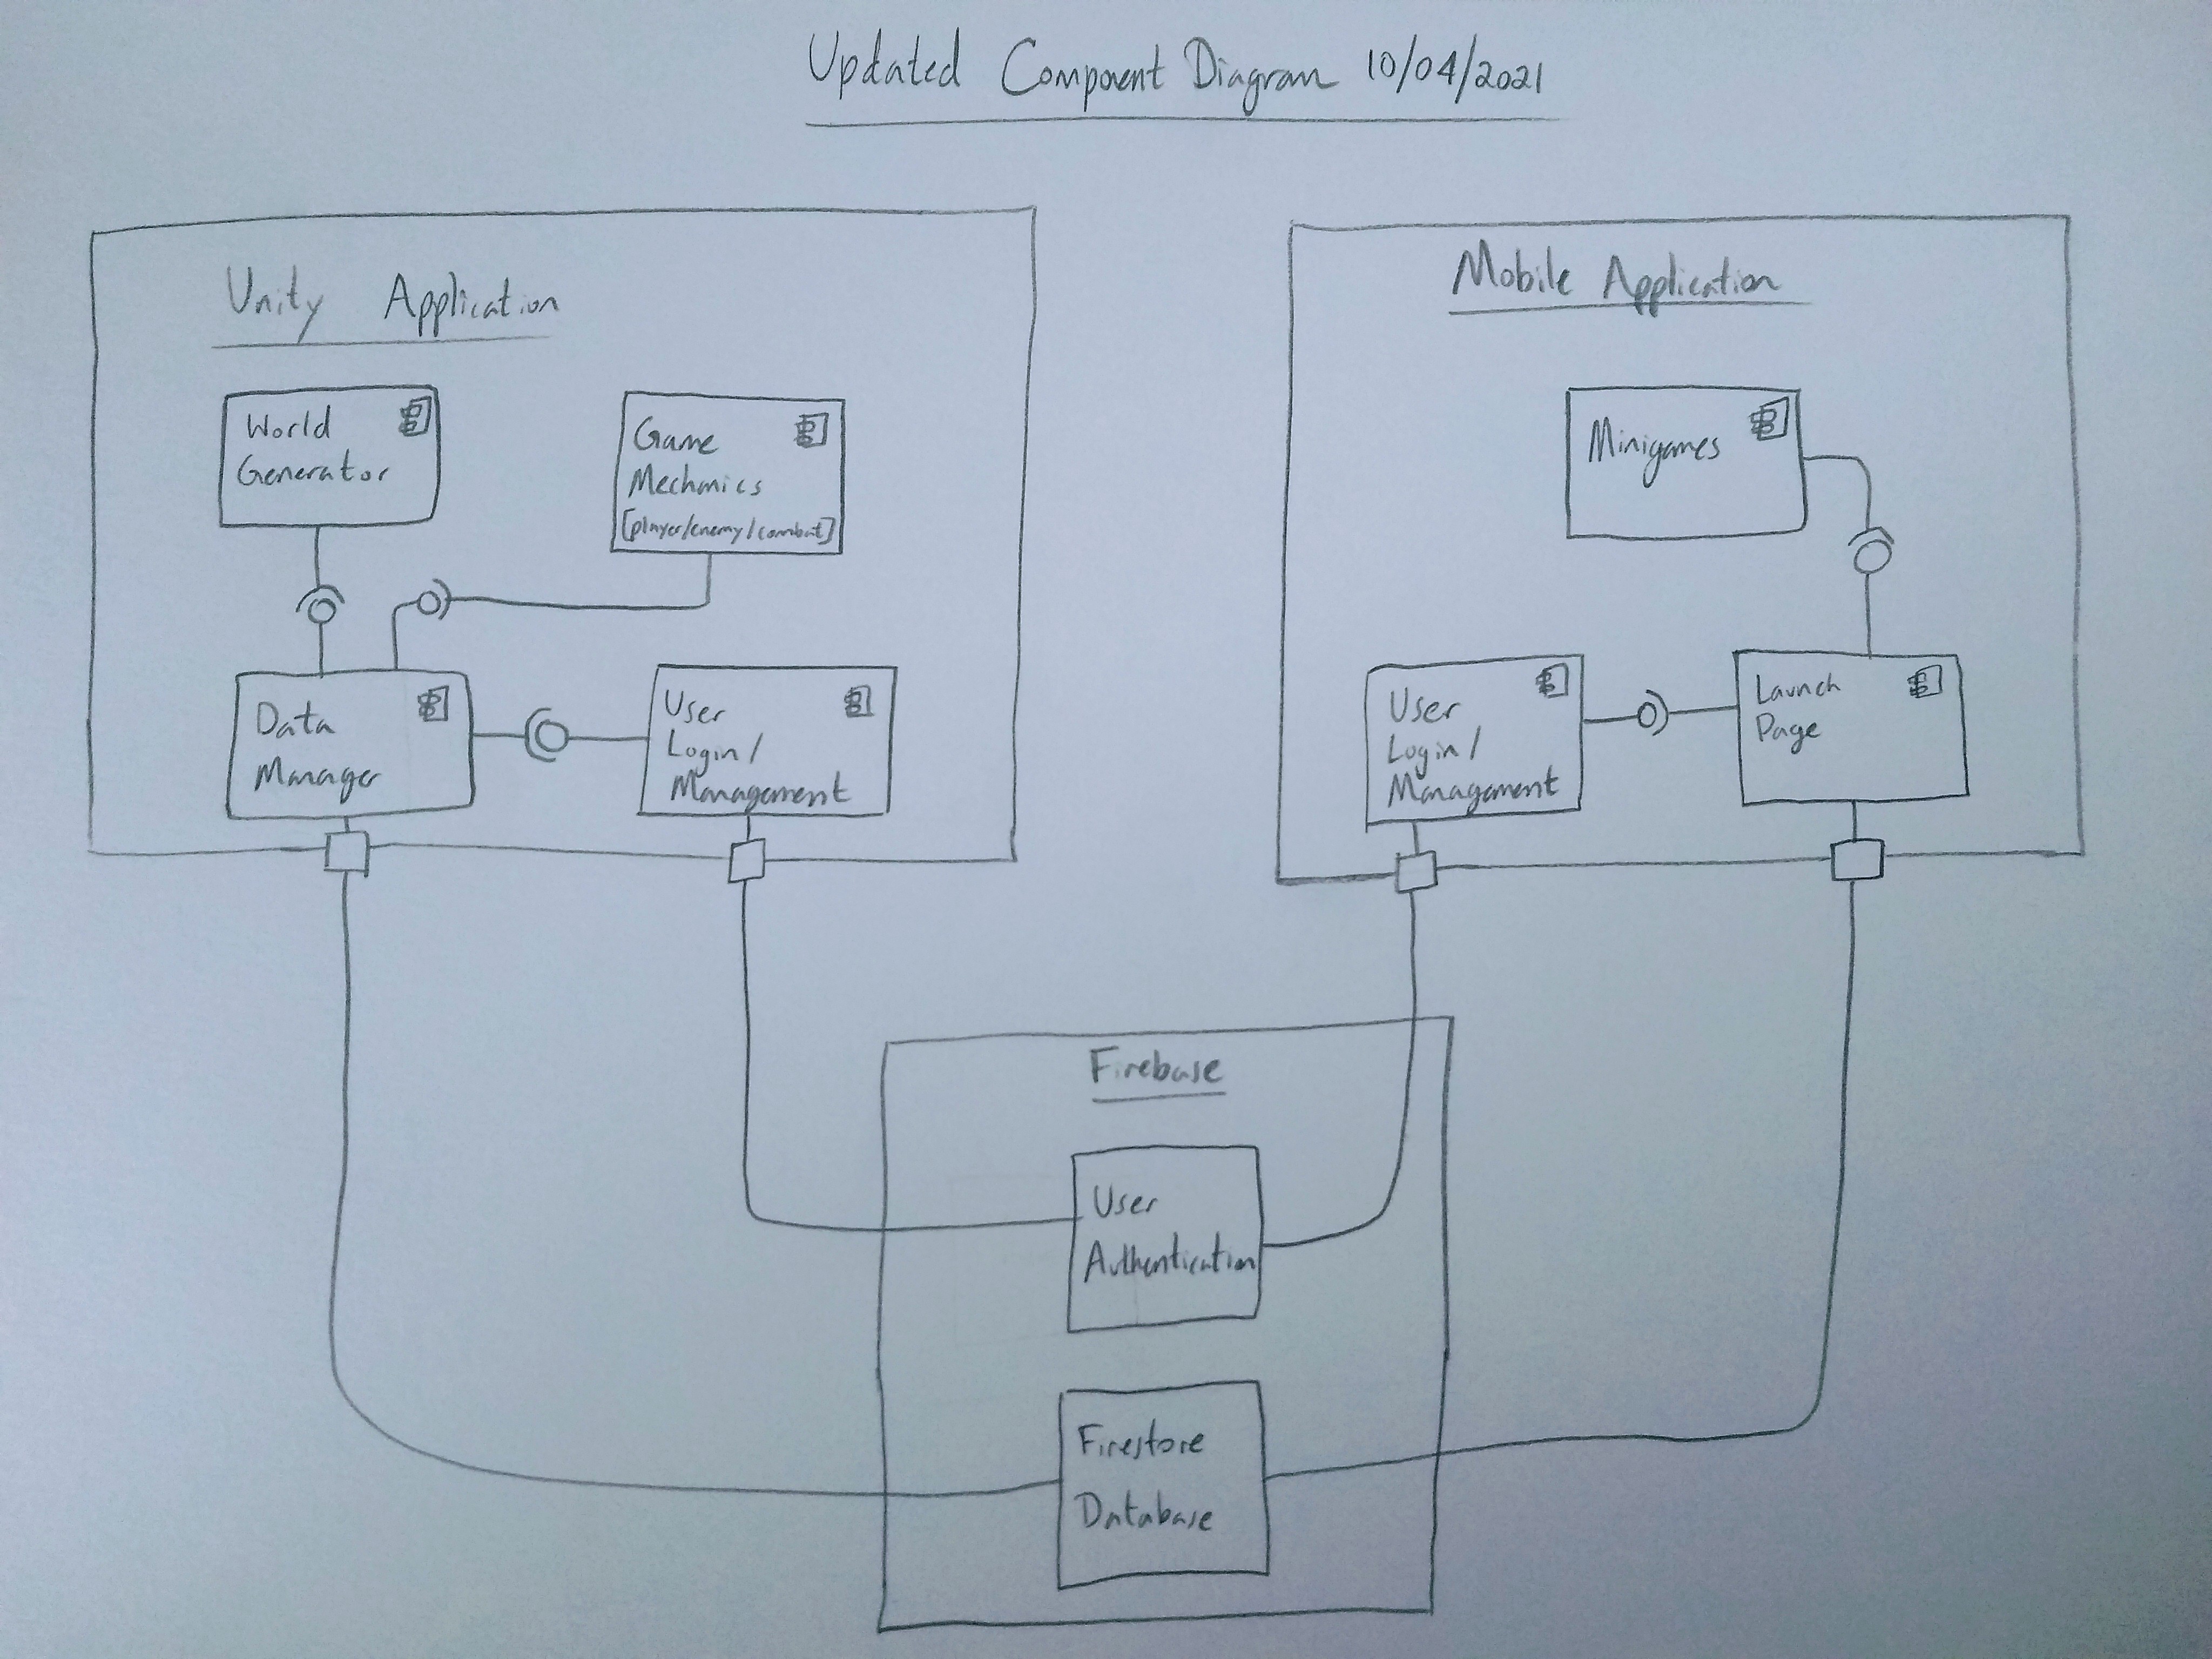 Updated Component Diagram 10/04/2021
Unity Application
World
Generator
Game
Mechanics
[player/enemy/combat]
Data
Manager
User
Login/
Management
Mobile Application
Minigames
User
Login/
Management
Launch
Page
Firebase
User
Authentication
Firestore
Database